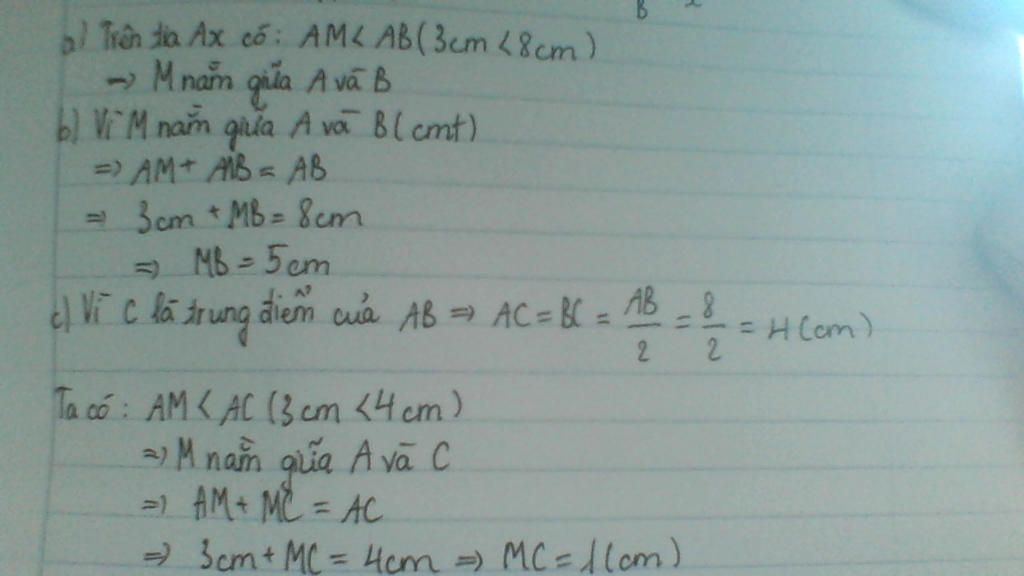 B x
a) Trên tia Ax có: AM < AB (3cm < 8cm)
→ M nằm giữa A và B
b) Vì M nằm giữa A và B (cmt)
=> AM + MB = AB
=> 3cm + MB = 8cm
=> MB = 5cm
c) Vì C là trung điểm của AB => AC = BC = AB/2 = 8/2 = 4 (cm)
Ta có: AM < AC (3cm < 4cm)
=> M nằm giữa A và C
=> AM + MC = AC
=> 3cm + MC = 4cm => MC = 1 (cm)